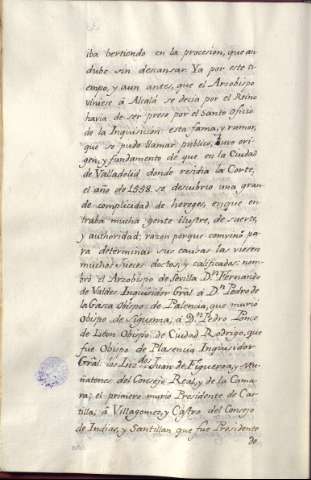 iba bertiendo en la procesion, que an
dube sin descansar. Ya por este ti
empo, y aun antes, que el Arzobispo
viniese á Alcalá se decia por el Reino
havia de ser preso por el Santo Oficio
de la Inquisicion esta fama, y rumor,
que se pudo llamar publico, tuvo ori
gen, y fundamento de que en la Ciudad
de Valladolid donde residia la Corte,
el año de 1558. se descubrio una gran
de complicidad de hereges, en que en
traba mucha gente ilustre, de suerte,
y authoridad; razon porque convino pa
ra determinar sus causas las viesen
muchos Jueces doctos, y calificados nom
bró el Arzobispo de Sevilla Dn. Hernando
de Valdes Inquisidor Gral á Dn. Pedro de
la Gasca Obispo de Palencia, que murió
Obispo de Siguenza, á Dn. Pedro Ponce
de Leon Obispo de Ciudad Rodrigo, que
fue Obispo de Plasencia Inquisidor
Gral. los Lizdos. Juan de Figueroa, y Mu
ñatones del Consejo Real, y de la Cama
ra; el primero murió Presidente de Cas
tilla, á Villagomez, y Castro del Consejo
de Indias, y Santillan que fue Presidente
de